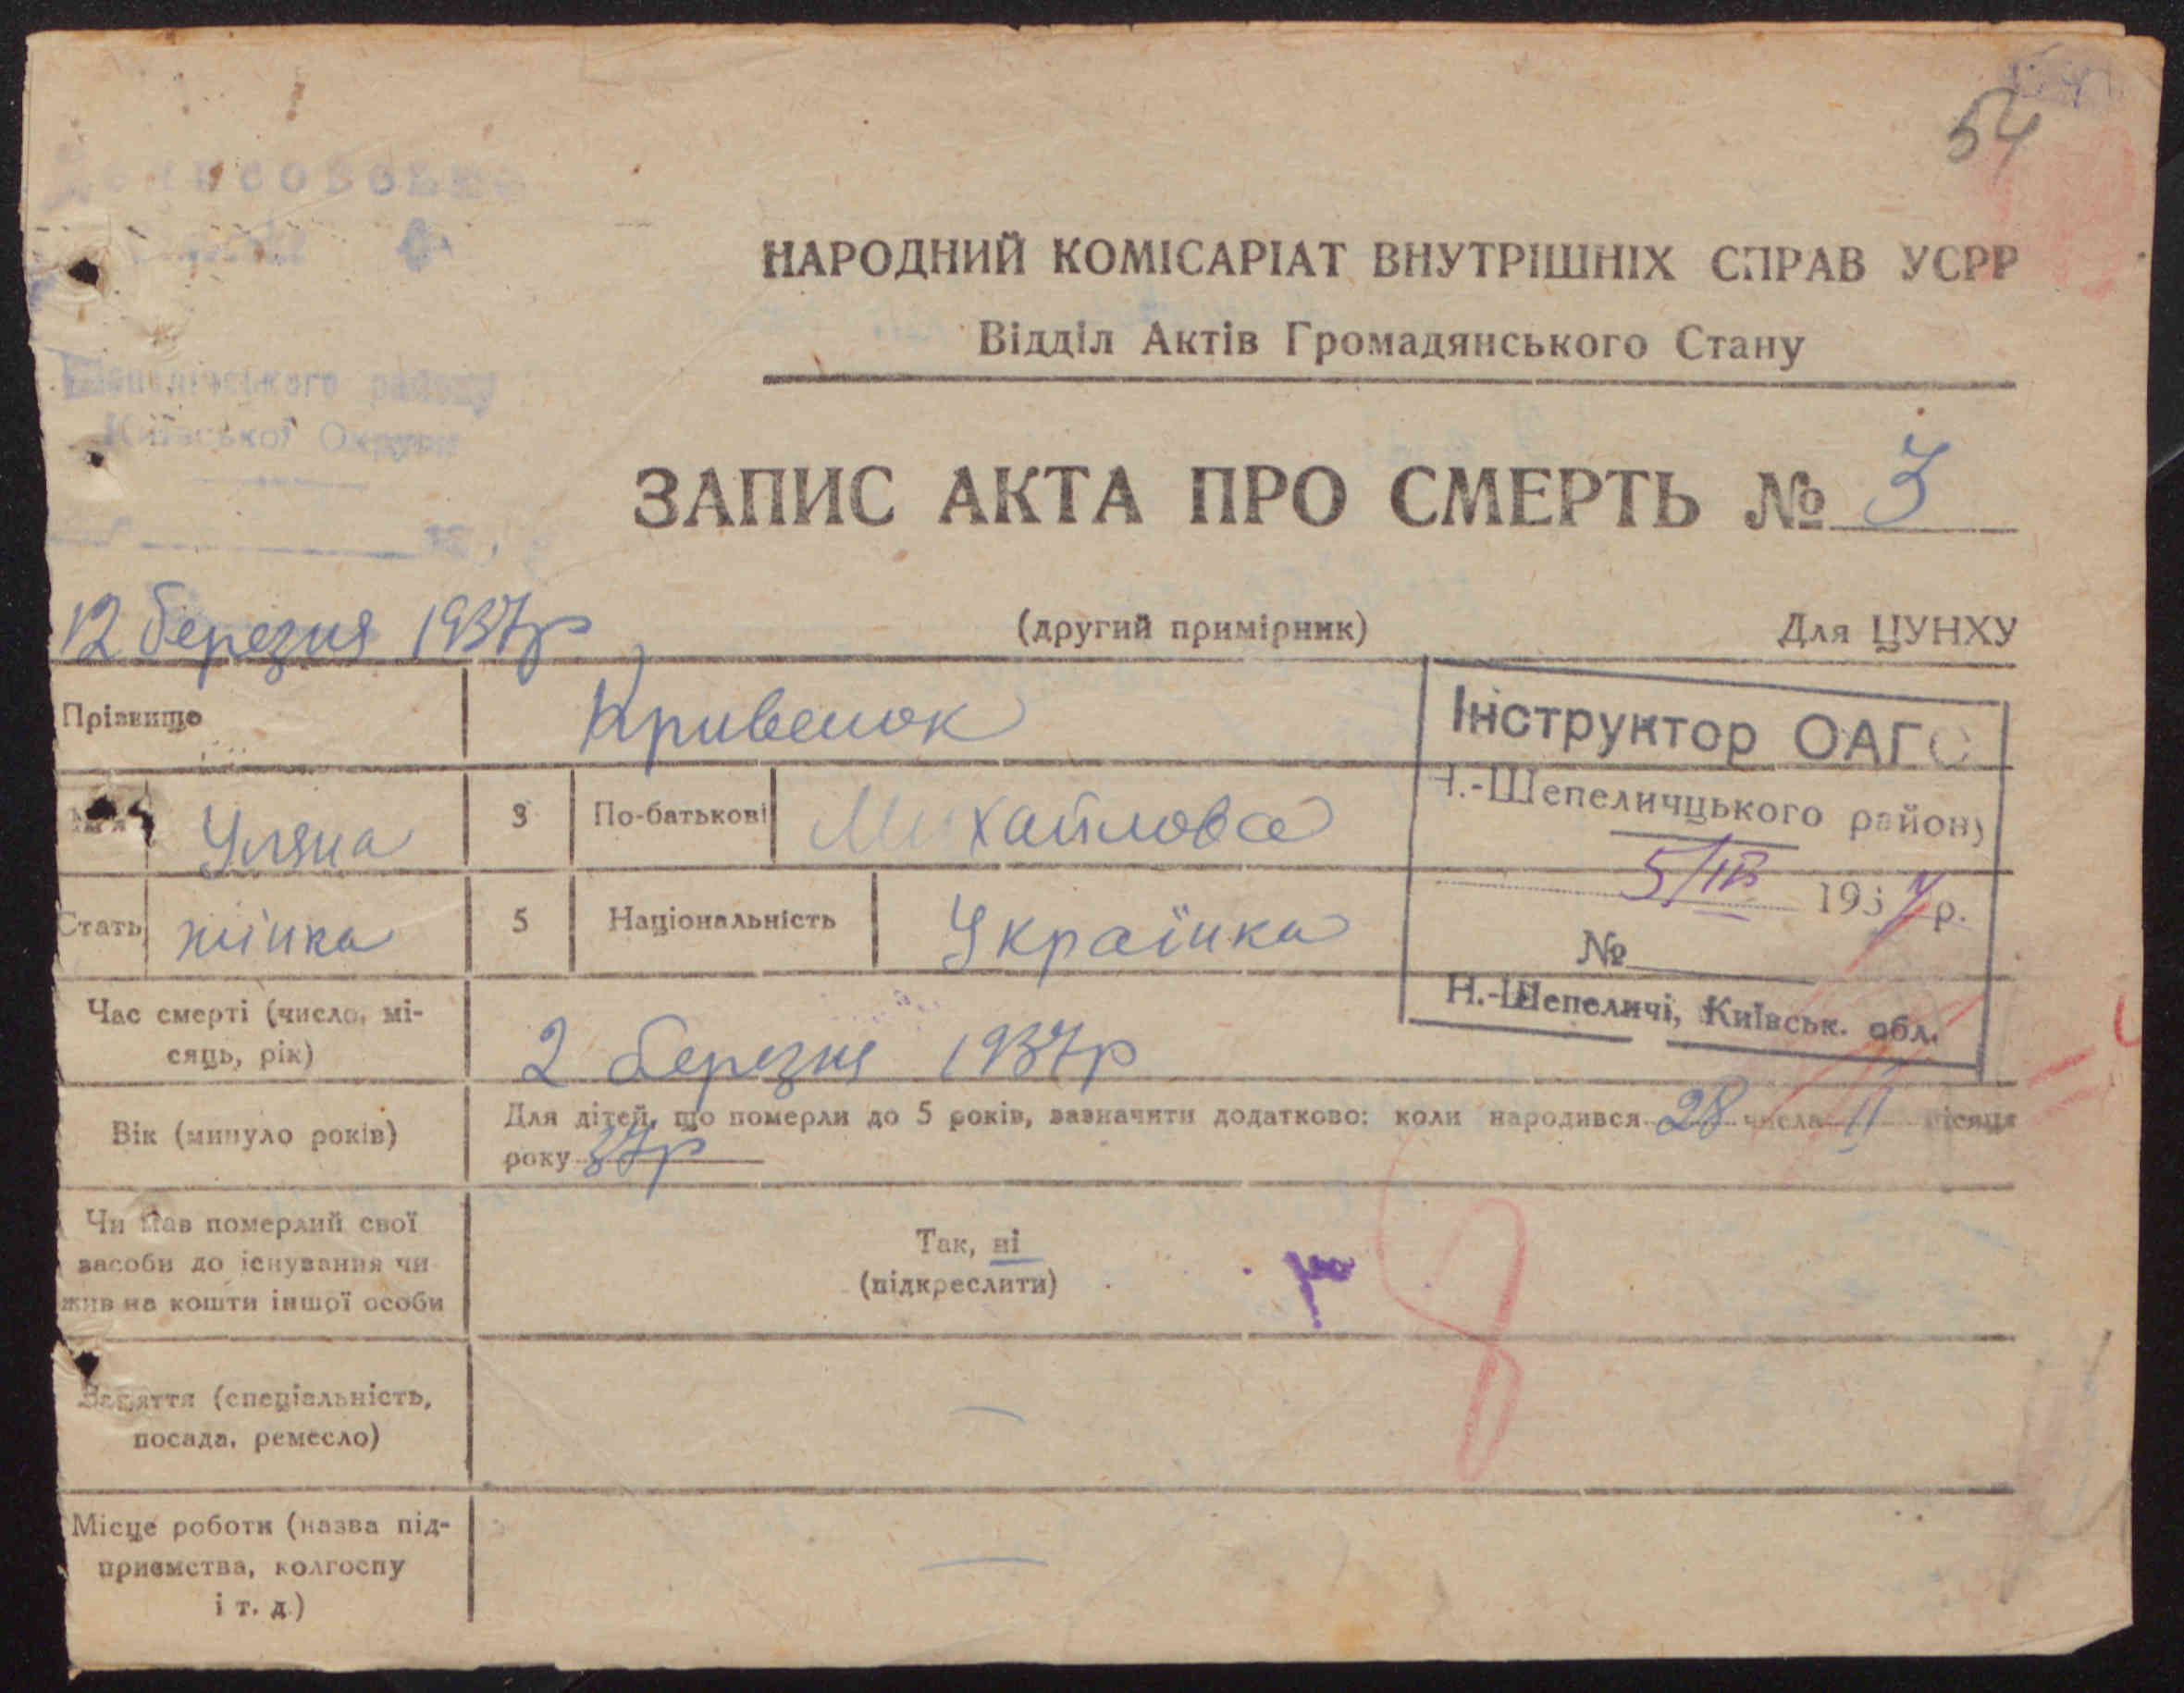 54
НАРОДНИЙ КОМІСАРІАТ ВНУТРІШНІХ СПРАВ УСРР
Відділ Актів Громадянського Стану
району
Київської Округи
ЗАПИС АКТА ПРО СМЕРТЬ № 3
12 березня 1937р
(другий примірник)
Для ЦУНХУ
Прізвище
Кривенок
Інструктор ОАГС
Н.-Шепеличцького району
5/III 1937р.
№
Н.-Шепеличі, Київськ. обл.
Ім'я Уляна 3 По-батькові Михайлова
Стать жінка 5 Національність Українка
Час смерті (число, мі-
сяць, рік)
2 березня 1937р
Вік (минуло років)
Для дітей, що померли до 5 років, зазначити додатково: коли народився 28 числа II місяця
року 37р
Чи мав померлий свої
засоби до існування чи
жив на кошти іншої особи
Так, ні
(підкреслити)
Заняття (спеціальність,
посада, ремесло)
—
Місце роботи (назва під-
приємства, колгоспу
і т. д.)
—